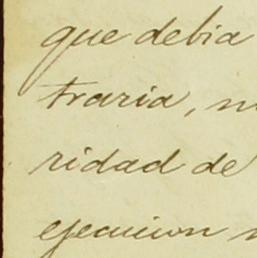 que debia
traria,
ridad de
ejecucion